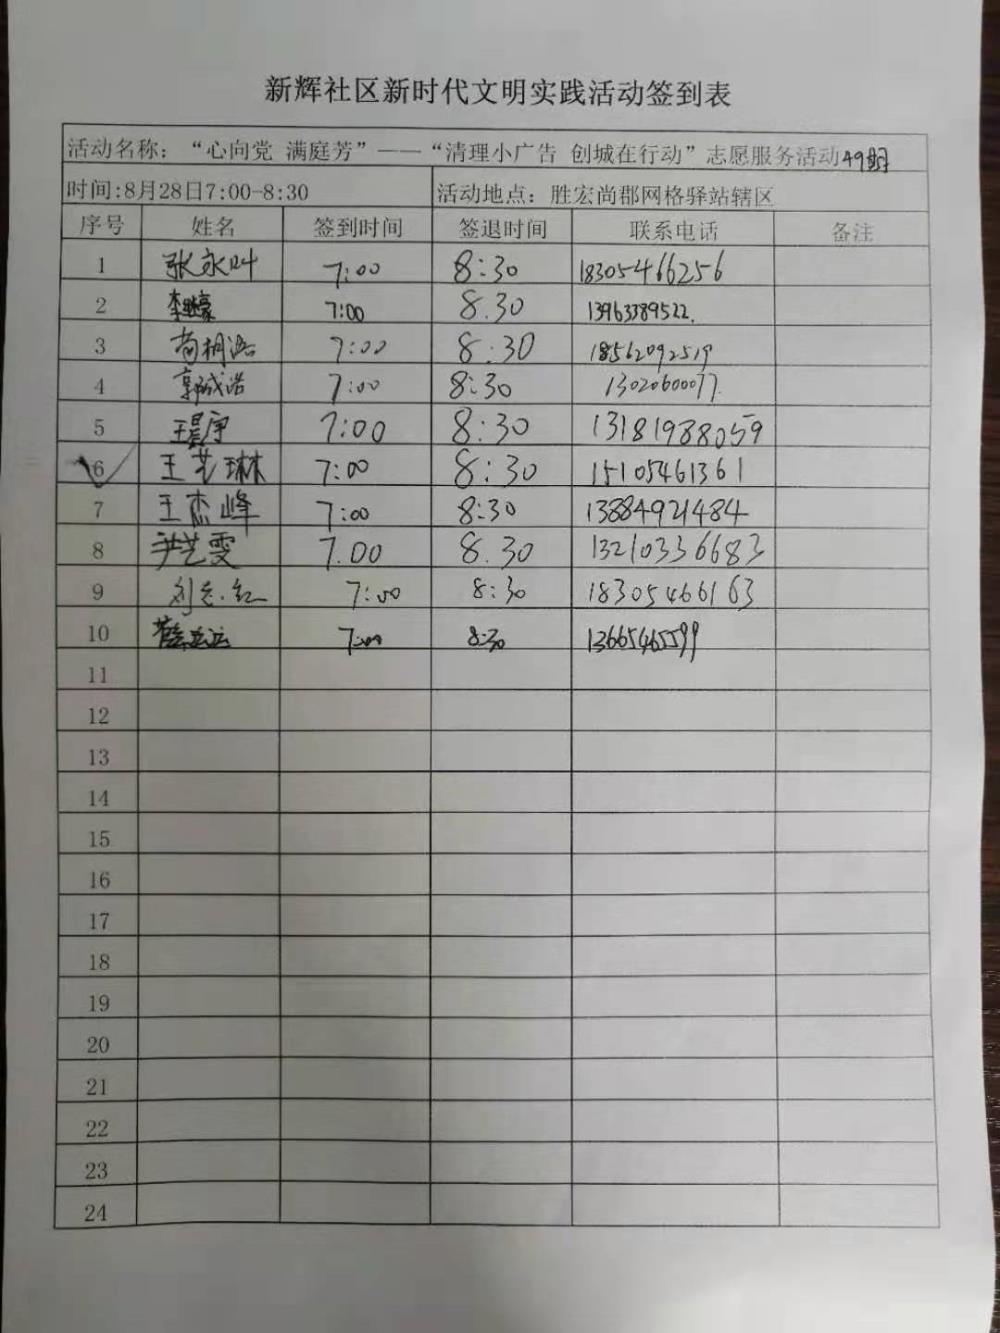 新辉社区新时代文明实践活动签到表
活动名称：“心向党 满庭芳”——“清理小广告 创城在行动”志愿服务活动49期
时间:8月28日7:00-8:30 活动地点：胜宏尚郡网格驿站辖区
序号 姓名 签到时间 签退时间 联系电话 备注
1 张永叶 7:00 8:30 18305466256
2 7:00 8.30 13963389522.
3 苟桐浩 7:00 8:30 18562092519
4 郭诚浩 7:00 8:30 13020600077
5 王昊宇 7:00 8:30 13181988059
6 王艺琳 7:00 8:30 15105461361
7 王杰峰 7:00 8:30 13884921484
8 尹艺雯 7.00 8.30 13210336683
9 刘志红 7:00 8:30 18305466163
10 7:00 8:30 13665465599
11
12
13
14
15
16
17
18
19
20
21
22
23
24